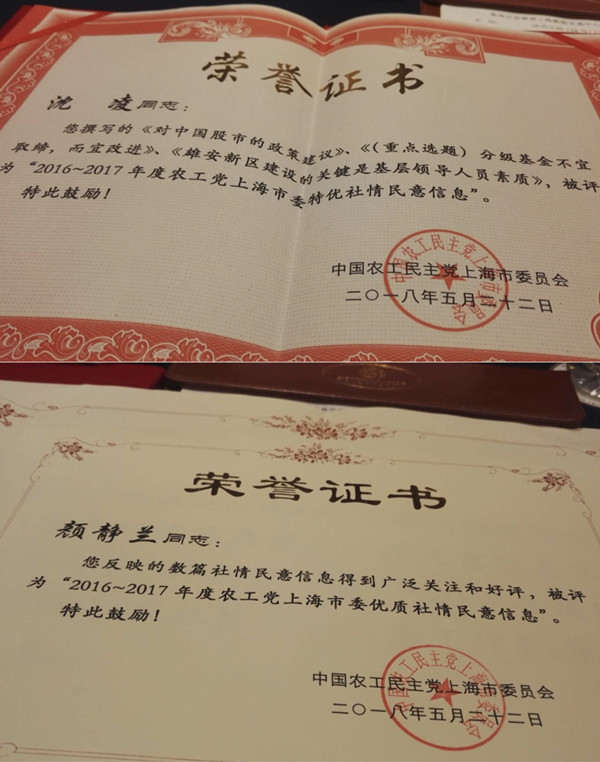 荣誉证书
沈 凌同志：
您撰写的《对中国股市的政策建议》、《（重点选题）分级基金不宜
取缔，而宜改进》、《雄安新区建设的关键是基层领导人员素质》，被评
为“2016~2017年度农工党上海市委特优社情民意信息”。
特此鼓励！
中国农工民主党上海市委员会
二〇一八年五月二十二日
中国农工民主党上海市委员会
荣誉证书
颜静兰同志：
您反映的数篇社情民意信息得到广泛关注和好评，被评
为“2016~2017年度农工党上海市委优质社情民意信息”。
特此鼓励！
中国农工民主党上海市委员会
二〇一八年五月二十二日
中国农工民主党上海市委员会